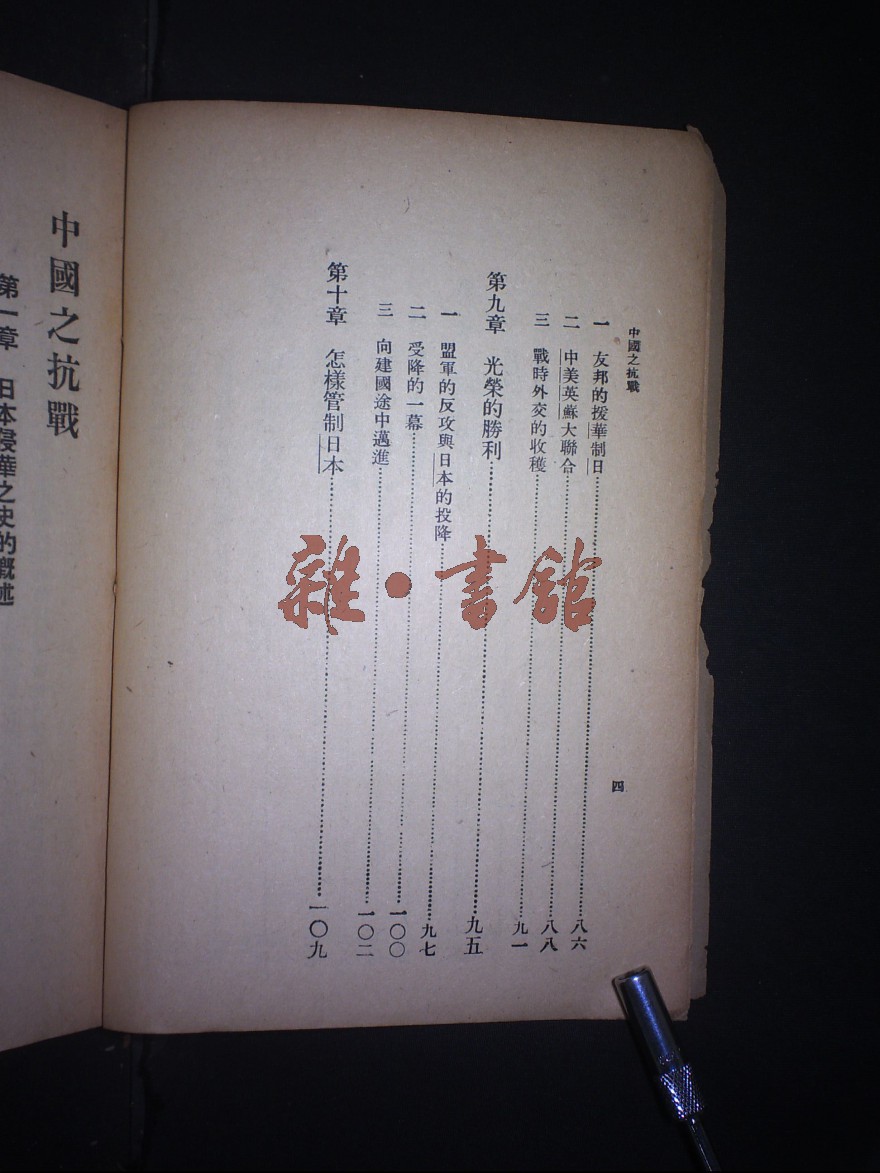 中國之抗戰
四
一 友邦的援華制日 八六
二 中美英蘇大聯合 八八
三 戰時外交的收穫 九一
第九章 光榮的勝利 九五
一 盟軍的反攻與日本的投降 九七
二 受降的一幕 一〇〇
三 向建國途中邁進 一〇二
第十章 怎樣管制日本 一〇九
雜·書館
中國之抗戰
第一章 日本侵華之史的概述